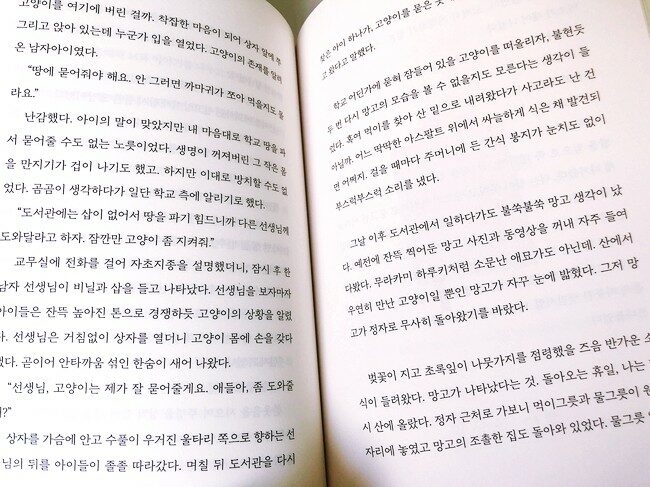 고양이를 여기에 버린 걸까. 착잡한 마음이 되어 상자 앞에 쭈
그리고 앉아 있는데 누군가 입을 열었다. 고양이의 존재를 알려
온 남자아이였다.
“땅에 묻어줘야 해요. 안 그러면 까마귀가 쪼아 먹을지도 몰
라요.”
난감했다. 아이의 말이 맞았지만 내 마음대로 학교 땅을 파
서 묻어줄 수도 없는 노릇이었다. 생명이 꺼져버린 그 작은 몸
을 만지기가 겁이 나기도 했고. 하지만 이대로 방치할 수도 없
었다. 곰곰이 생각하다가 일단 학교 측에 알리기로 했다.
“도서관에는 삽이 없어서 땅을 파기 힘드니까 다른 선생님께
도와달라고 하자. 잠깐만 고양이 좀 지켜줘.”
교무실에 전화를 걸어 자초지종을 설명했더니, 잠시 후 한
남자 선생님이 비닐과 삽을 들고 나타났다. 선생님을 보자마자
아이들은 잔뜩 높아진 톤으로 경쟁하듯 고양이의 상황을 알렸
다. 선생님은 거침없이 상자를 열더니 고양이 몸에 손을 갖다
댔다. 곧이어 안타까움 섞인 한숨이 새어 나왔다.
“선생님, 고양이는 제가 잘 묻어줄게요. 얘들아, 좀 도와줄
래?”
상자를 가슴에 안고 수풀이 우거진 울타리 쪽으로 향하는 선
생님의 뒤를 아이들이 졸졸 따라갔다. 며칠 뒤 도서관을 다시
찾은 아이 하나가, 고양이를 묻은 곳
고 왔다고 말했다.
학교 어딘가에 묻혀 잠들어 있을 고양이를 떠올리자, 불현듯
두 번 다시 망고의 모습을 볼 수 없을지도 모른다는 생각이 들
었다. 혹여 먹이를 찾아 산 밑으로 내려왔다가 사고라도 난 건
아닐까. 어느 딱딱한 아스팔트 위에서 싸늘하게 식은 채 발견되
면 어쩌지. 걸을 때마다 주머니에 든 간식 봉지가 눈치도 없이
부스럭부스럭 소리를 냈다.
그날 이후 도서관에서 일하다가도 불쑥불쑥 망고 생각이 났
다. 예전에 잔뜩 찍어둔 망고 사진과 동영상을 꺼내 자주 들여
다봤다. 무라카미 하루키처럼 소문난 애묘가도 아닌데. 산에서
우연히 만난 고양이일 뿐인 망고가 자꾸 눈에 밟혔다. 그저 망
고가 정자로 무사히 돌아왔기를 바랐다.
벚꽃이 지고 초록잎이 나뭇가지를 점령했을 즈음 반가운 소
식이 들려왔다. 망고가 나타났다는 것. 돌아오는 휴일, 나는
시 산에 올랐다. 정자 근처로 가보니 먹이그릇과 물그릇이 원
자리에 놓였고 망고의 조촐한 집도 돌아와 있었다. 물그릇